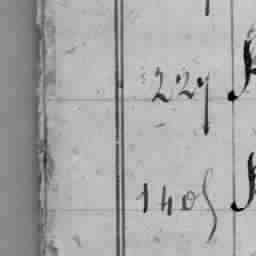 227
1405